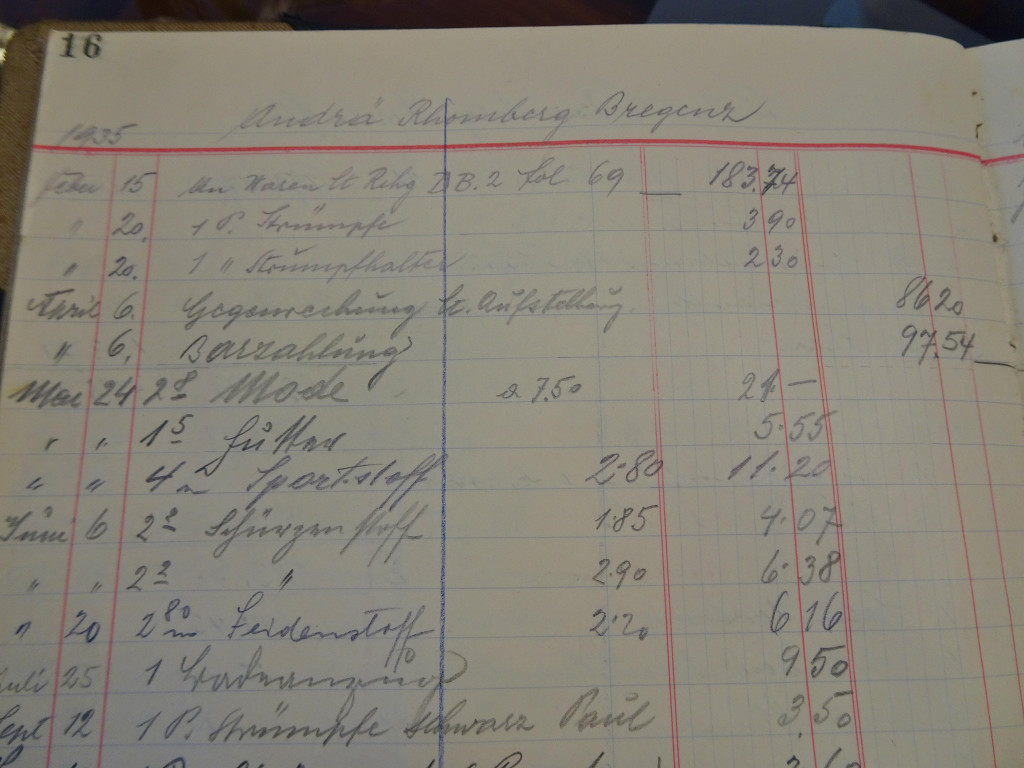 16
Andrä Rhomberg Bregenz
1935
Feber 15 An Waren lt Rchg B. 2 fol 69 183.74
" 20. 1 P. Strümpfe 3 90
" 20. 1 " Strumpfhalter 2 30
April 6. Gegenrechnung lt. Aufstellung 86 20
" 6. Barzahlung 97.54
Mai 24 2 8 Mode a 7.50 21 —
" " 1 5 Futter 5.55
" " 4 m Sportstoff 2.80 11.20
Juni 6 2 2 Schürzenstoff 1.85 4.07
" " 2 2 " 2.90 6.38
" 20 2 80 m Seidenstoff 2.20 6 16
Juli 25 1 Badeanzug 9 50
Sept 12 1 P. Strümpfe schwarz Paul 3.50